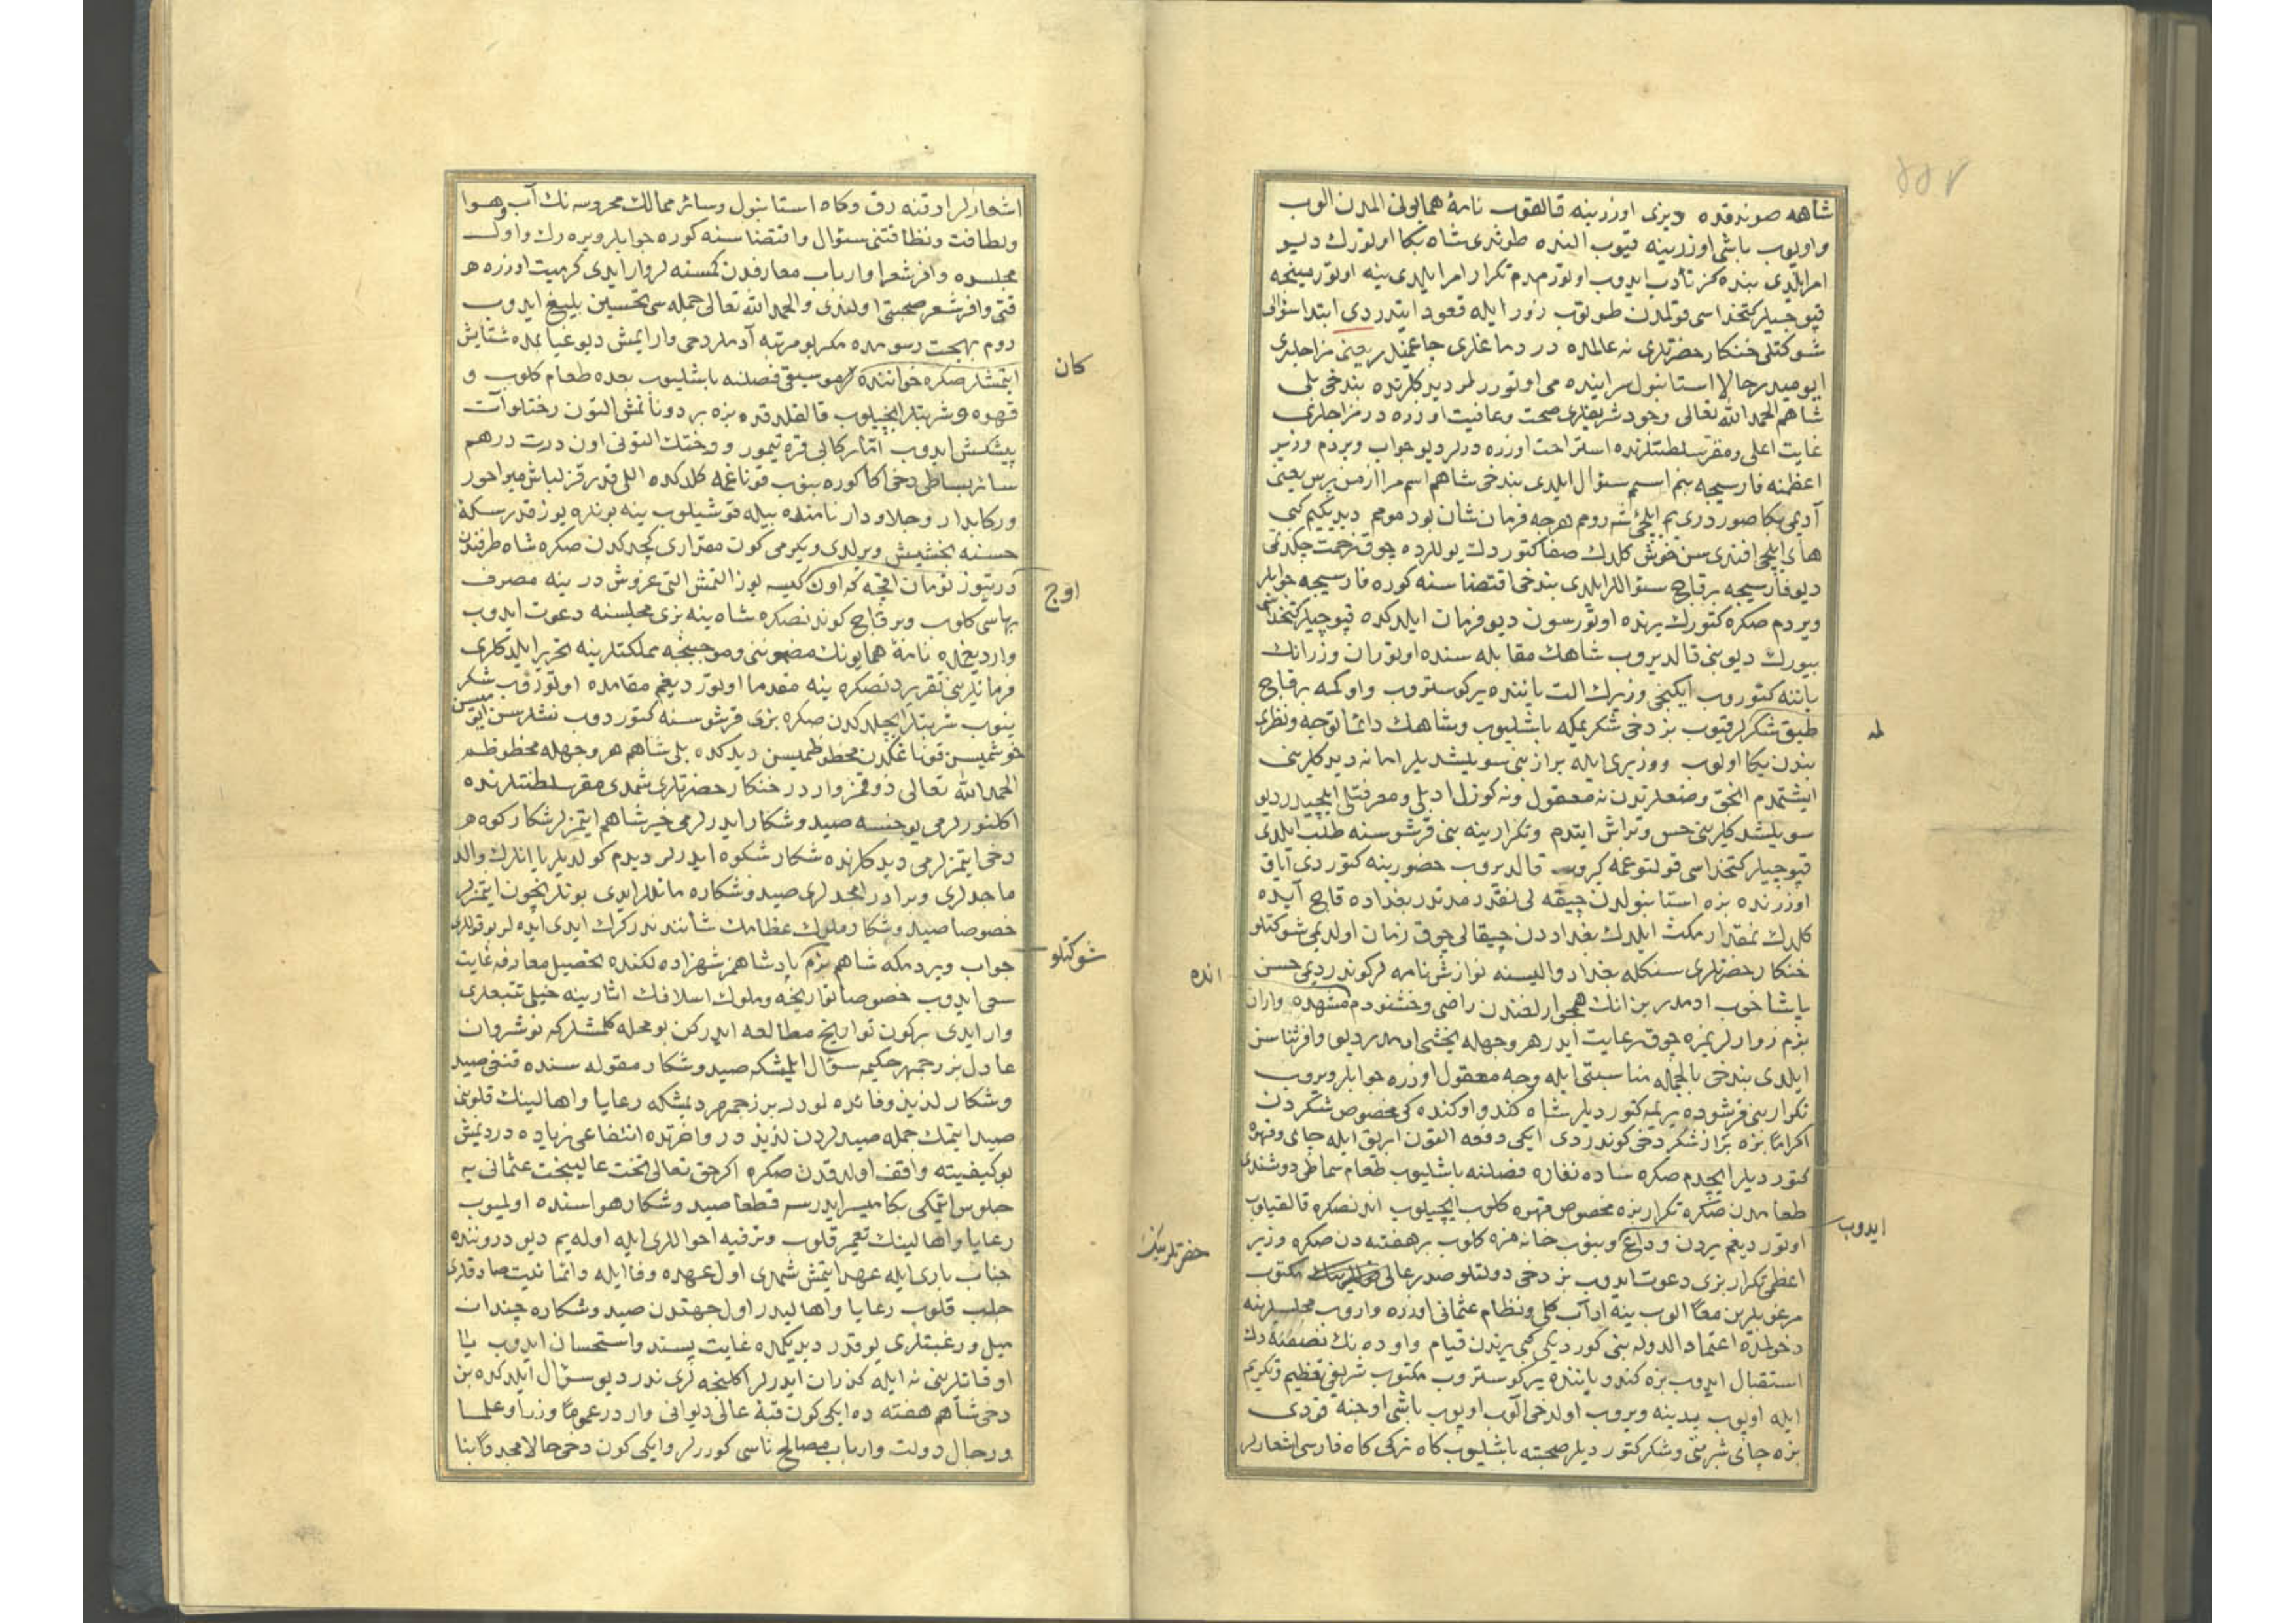 شاهه صوندقده دیزی اوزرینه قالقوب نامهٔ همایونی المدن الوب
واوپوب باشی اوزرینه قیوب الینده طوتدی شاه بکا اوتورك دیو
امر ایلدی بنده کز تأدب ایدوب اوتورمدم تکرار امر ایلدی ینه اوتورمینجه
قپوجیلر کتخداسی قولمدن طوتوب زور ایله قعود ایتدردی ابتدا سؤالی
شوکتلی خنکار حضرتلری نه عالمده در دماغلری چاغمیدر یعنی مزاجلری
ایومیدر حالا استانبول سراینده می اوتوررلر دیدکلرنده بندخی بلی
شاهم الحمد الله تعالی وجود شریفلری صحت وعافیت اوزره در مزاجلری
غایت اعلی ومقر سلطنتلرنده استراحت اوزره درلر دیو جواب ویردم وزیر
اعظمنه فارسیجه بنم اسمم سئوال ایلدی بندخی شاهم اسم مرا از من پرس یعنی
آدیمی بکا صور دری یم ایلچئ شه رومم هرچه فرمان شان بود مومم دیدیکم کبی
های ایلچی افندی سن خوش کلدك صفا کتوردك یوللرده چوق زحمت چکدکمی
دیو فارسیجه برقاچ سئواللر ایلدی بندخی اقتضاسنه کوره فارسیجه جوابلر
ویردم صکره کتورك یرنده اوتورسون دیو فرمان ایلدکده قپوجیلر کتخداسی
بیورك دیو بنی قالدیروب شاهك مقابله سنده اوتوران وزرانك
یاننه کتوروب ایکنجی وزیرك الت یاننده یر کوستروب واوکمه برقاچ
طبق شکرلر قیوب بز دخی شکر یمکه باشلیوب وشاهك دائما توجه ونظری
بندن یکا اولوب ووزیری ایله براز بنی سویلشدیلر اما نه دیدکلرینی
ایشتمدم انجق وضعلرندن نه معقول ونه کوزل ادبلی ومعرفتلی ایلچیدر دیو
سویلشدکلرینی حس ویراش ایتدم وتکرار ینه بنی قرشوسنه طلب ایلدی
قپوجیلر کتخداسی قولتوغمه کیروب قالدیروب حضورینه کتوردی آیاق
اوزرنده بزه استانبولدن چیقه لی نقدر مدتدر بغداده قاچ آیده
کلدك نمقدار مکث ایلدك بغداددن چیقالی چوق زمان اولدیمی شوکتلو
خنکار حضرتلری سنکله بغداد والیسنه نوازش نامه لر کوندردیمی حسن
پاشا خوب ادمدر بن انك همجوارلغندن راضی وخشنودم مشهده واران
بزم زوارلریمزه چوق رعایت ایدر هر وجهله یخشی ادمدر دیو وافر ثناسن
ایلدی بندخی بالجمله مناسبتی ایله وجه معقول اوزره جوابلر ویروب
تکرار بنی قرشوده یریمه کتوردیلر شاه کندو اوکنده کی مخصوص شکردن
اکراما بزه براز شکر دخی کوندردی ایکی دفعه التون ابریق ایله چای وقهوه
کتوردیلر ایچدم صکره ساده نغاره فصلنه باشلیوب طعام سماطی دوشندی
طعامدن صکره تکرار بزه مخصوص قهوه کلوب ایچیلوب اندنصکره قالقیلوب
اوتوردیغم یردن وداع وبینوب خانه مزه کلوب بر هفته دن صکره وزیر
اعظمی تکرار بزی دعوت ایدوب بز دخی دولتلو صدر عالی مکتوب
مرغوبلرین معا الوب ینه اداب کلی ونظام عثمانی اوزره واروب مجلسلرینه
دخولمزده اعتماد الدوله بنی کوردیکی کبی یرندن قیام واوده نك نصفنه دك
استقبال ایدوب بزه کندو یاننده یر کوستروب مکتوب شریفی تعظیم وتکریم
ایله اوپوب یدینه ویروب اولدخی الوب اوپوب باشی اوجنه قودی
بزه چای شربتی وشکر کتوردیلر صحبته باشلیوب کاه ترکی کاه فارسی اشعارلر
له
انده
ایدوب
حضرتلرینك
اشعارلر اوقنه رق وکاه استانبول وسائر ممالك محروسه نك آب وهوا
ولطافت ونظافتنی سئوال واقتضاسنه کوره جوابلر ویره رك واول
مجلسده وافر شعرا وارباب معارفدن کمسنه لر وار ایدی کرمیت اوزره هر
قنی وافر شعر صحبتی اولندی والحمد الله تعالی جمله سی تحسین بلیغ ایدوب
روم بهجت رسومده مکر بو مرتبه آدملر دخی وار ایمش دیو غیابمده ستایش
ایتمشلر صکره خواننده لر موسیقی فصلنه باشلیوب بعده طعام کلوب و
قهوه و شربتلر ایچیلوب قالقلدقده بزه بر دونانمش التون رختلو آت
پیشکش ایدوب اتلر کابی قره تیمور و ورختك التونی اون درت درهم
سائر بساطی دخی اکا کوره بینوب قوناغمه کلدکده اللی قدر قزلباش میراخور
ورکابدار وجلاودار نامنده بیله قوشیلوب ینه بونلره یوز قدر سکهٔ
حسنه بخشیش ویرلدی ویکرمی کون مقداری کچدکدن صکره شاه طرفندن
درتیوز تومان اقچه که اون کیسه یوز التمش التی غروش در ینه مصرف
بهاسی کلوب وبر قاچ کوندنصکره شاه ینه بزی مجلسنه دعوت ایدوب
واردیغمده نامهٔ همایونك مضموننی وموجبنجه مملکتلرینه تحریر ایلدکلری
فرمانلرینی تقریردنصکره ینه مقدما اوتوردیغم مقامده اوتورتوب شکر
ینوب شربتلر ایچلدکدن صکره بزی قرشوسنه کتوردوب نشلرسن ایومیسن
خوشمیسن قوناغکدن محظوظمیسن دیدکده بلی شاهم هر وجهله محظوظم
الحمد الله تعالی ذوقمز واردر خنکار حضرتلری شمدی مقر سلطنتلرنده
اکلنورلرمی یوخسه صید وشکار ایدرلرمی خیر شاهم ایتمزلر شکار کوه هر
دخی ایتمزلرمی دیدکلرنده شکار شکوه ایدرلر دیدم کولدیلر یا انلرك والد
ماجدلری وبرادر امجدلری صید وشکاره مائللر ایدی بونلر نیچون ایتمزلر
خصوصا صید وشکار ملوك عظامك شأنندندر کرك ایدی ایده لر بو قوللری
جواب ویردمکه شاهم بزم پادشاهمز شهزاده لکنده تحصیل معارفه غایت
سعی ایدوب خصوصا تواریخه وملوك اسلافك اثارینه خیلی تتبعلری
وار ایدی برکون تواریخ مطالعه ایدرکن بو محله کلمشلرکه نوشروان
عادل بزرجمهر حکیمه سؤال ایلمشکه صید وشکار مقوله سنده قنغی صید
وشکار لذیذ وفائده لودر بزرجمهر دیمشکه رعایا واهالینك قلوبنی
صید ایتمك جمله صیدلردن لذیذدر واخرتده انتفاعی زیاده در دیمش
بو کیفیته واقف اولدقدن صکره اکر حق تعالی تخت عالیبخت عثمانی یه
جلوس ایتمکی بکا میسر ایدرسه قطعا صید وشکار هواسنده اولمیوب
رعایا واهالینك تعمیر قلوب وترفیه احواللری ایله اوله یم دیو دروننده
جناب باری ایله عهد ایتمش شمدی اول عهده وفا ایله دائما نیت صادقلری
جلب قلوب رعایا واهالیدر اول جهتدن صید وشکاره چندان
میل ورغبتلری یوقدر دیدیکمده غایت پسند واستحسان ایدوب یا
اوقاتلرینی نه ایله کذران ایدرلر اکلنجه لری ندر دیو سؤال ایلدکده بن
دخی شاهم هفته ده ایکی کون قبهٔ عالی دیوانی واردر عموما وزرا وعلما
ورجال دولت وارباب مصالح ناسی کوررلر وایکی کون دخی حالا مجددا بنا
کان
اوج
شوکتلو